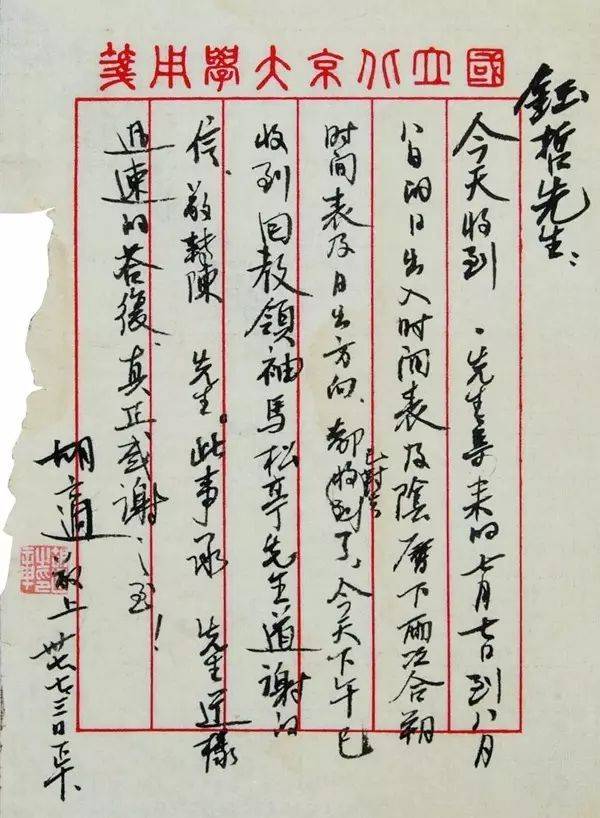 國立北京大學用箋
鈺哲先生：
今天收到 先生寄来的七月七日到八月
八日的日出入时间表及陰曆下兩次合朔
时间表及月出方向、都收到了，今天下午已
收到回教領袖馬松亭先生道謝的
信、敬轉陳 先生。此事承 先生这樣
迅速的答復、真正感谢之至！
胡適敬上 卅七、七、三日下午、